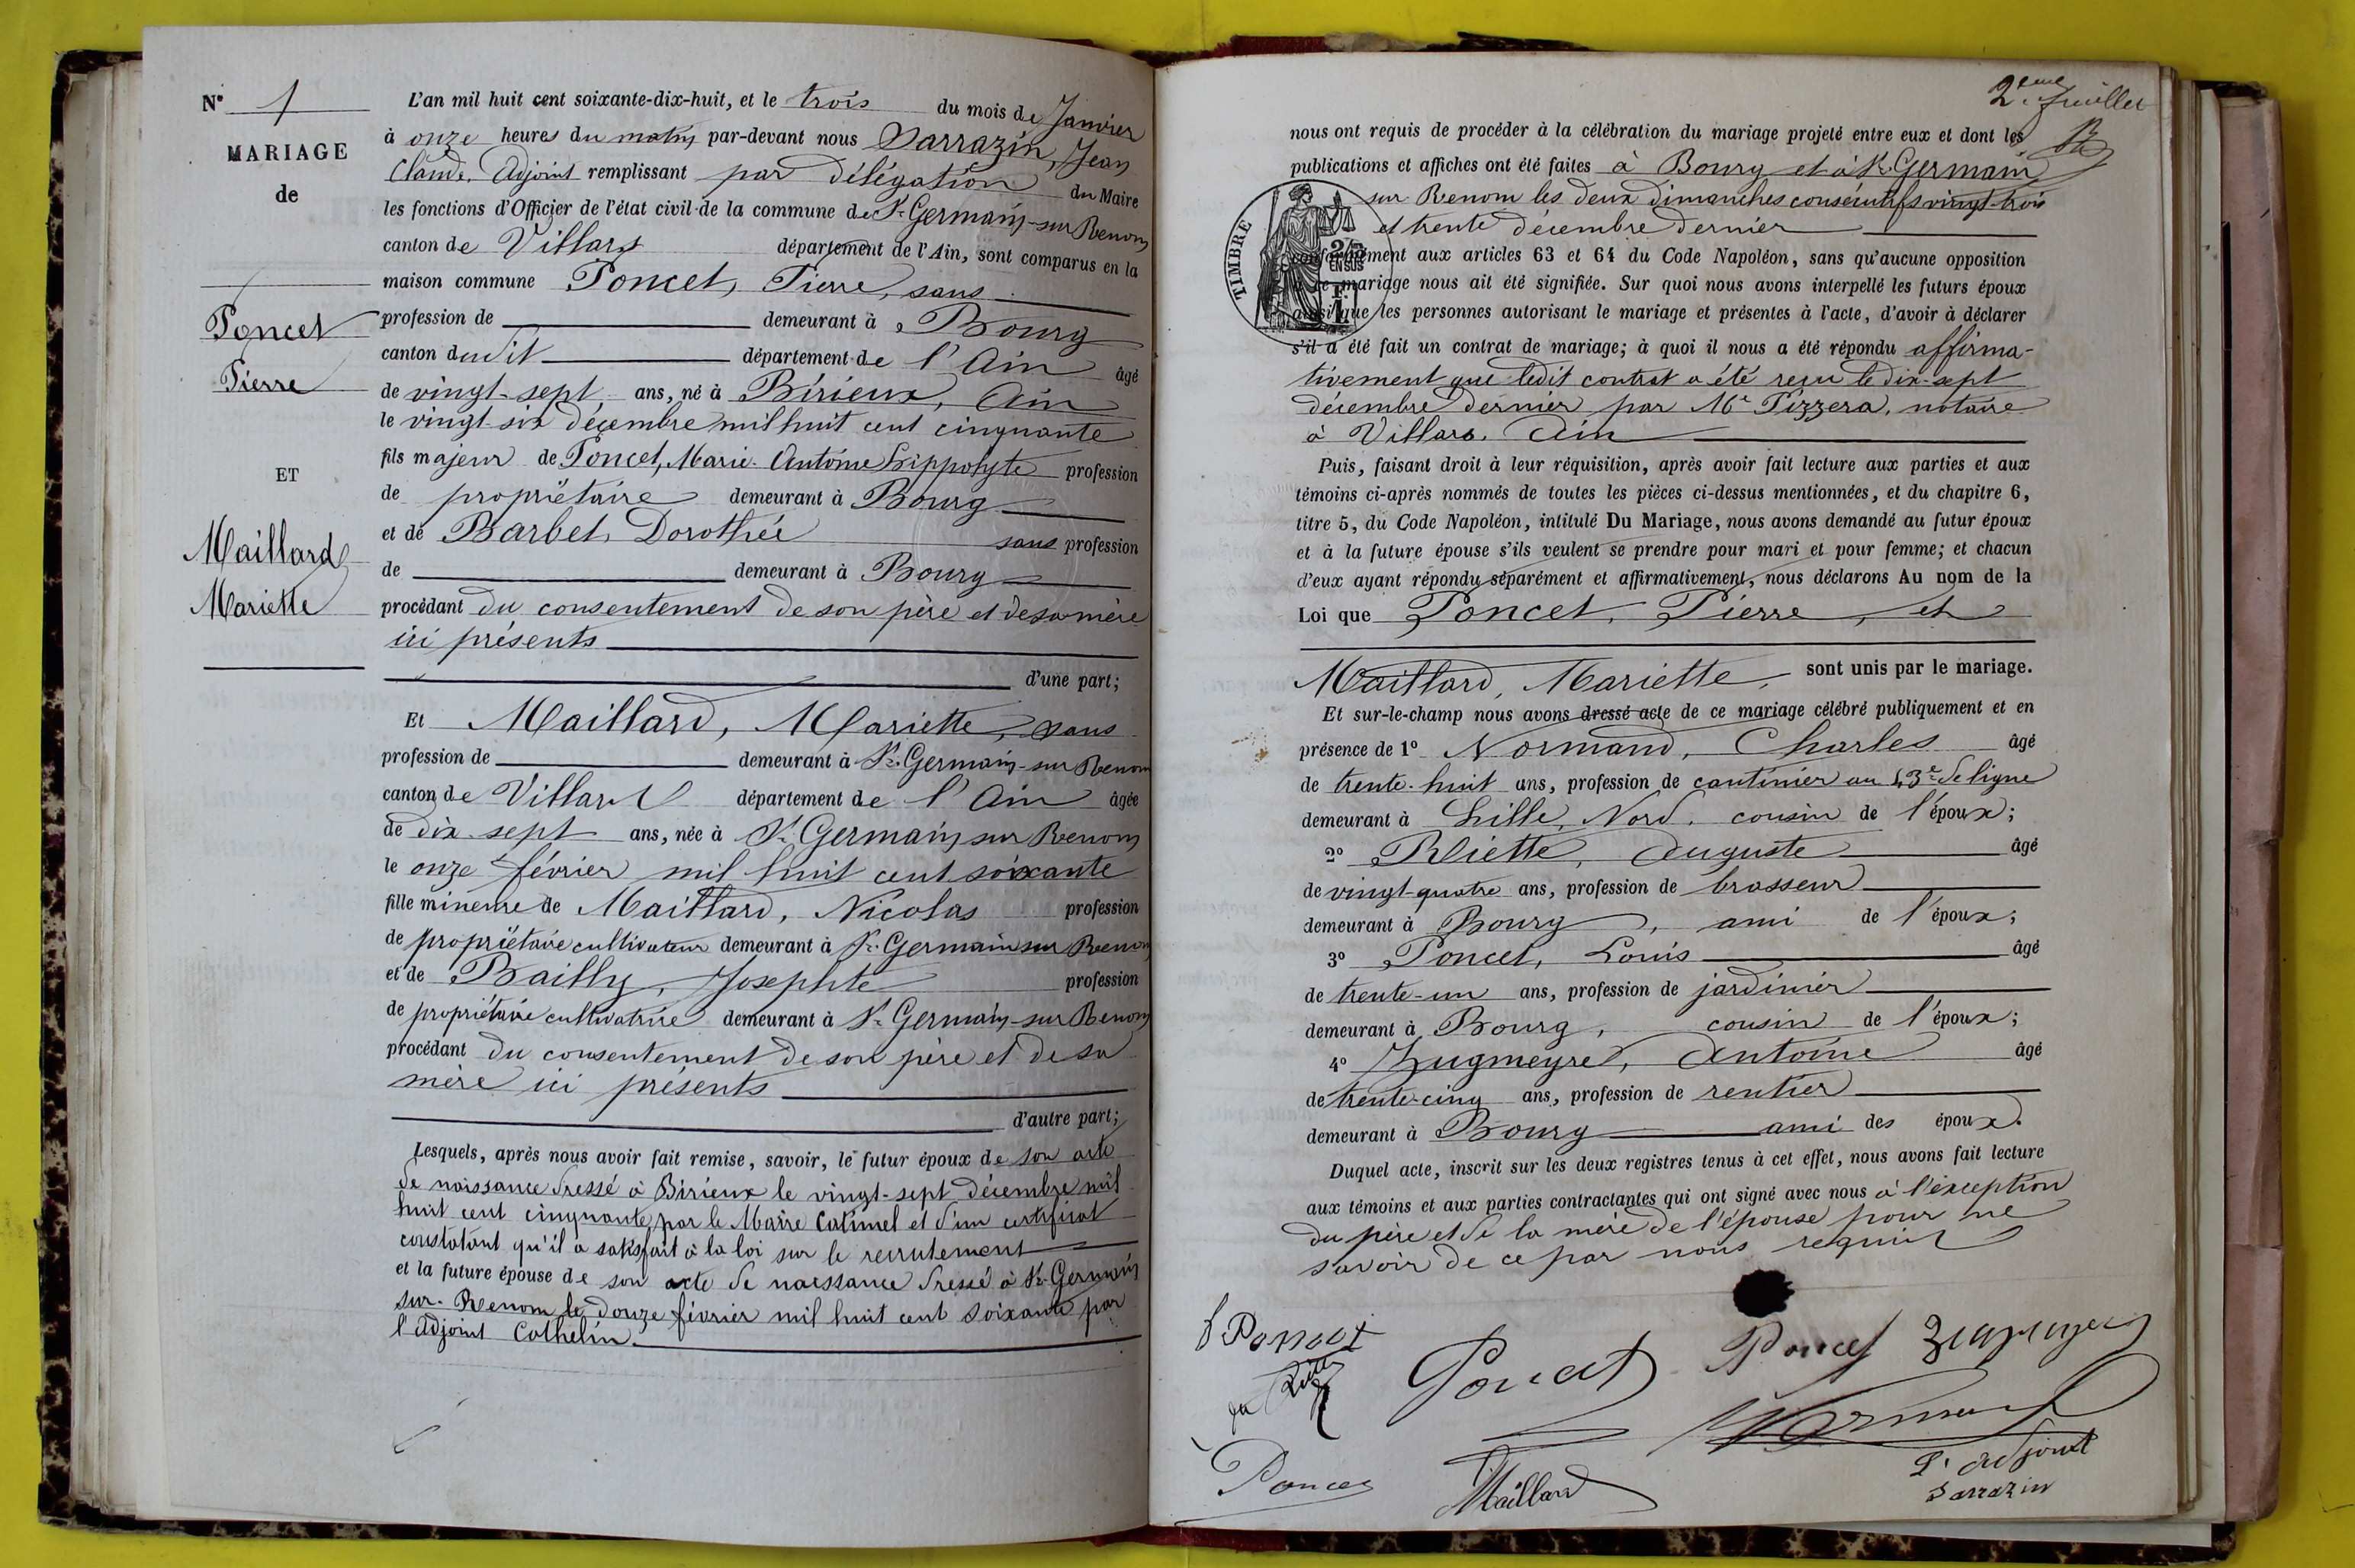 N° 1
MARIAGE
de
Poncet
Pierre
ET
Maillard
Mariette
L'an mil huit cent soixante-dix-huit, et le trois du mois de Janvier
à onze heures du matin par-devant nous Sarrazin, Jean
Claude, Adjoint remplissant par délégation du Maire
les fonctions d'Officier de l'état civil de la commune de St Germain-sur Renom
canton de Villars département de l'Ain, sont comparus en la
maison commune Poncet, Pierre, sans
profession de demeurant à Bourg
canton dudit département de l'Ain âgé
de vingt-sept ans, né à Birieux, Ain
le vingt-six décembre mil huit cent cinquante
fils majeur de Poncet, Marie-Antoine Hippolyte profession
de propriétaire demeurant à Bourg
et de Barbet, Dorothée sans profession
de demeurant à Bourg
procédant du consentement de son père et de sa mère
ici présents
d'une part;
Et Maillard, Mariette, sans
profession de demeurant à St Germain-sur Renom
canton de Villars département de l'Ain âgée
de dix-sept ans, née à St Germain sur Renom
le onze février mil huit cent soixante
fille mineure de Maillard, Nicolas profession
de propriétaire cultivateur demeurant à St Germain sur Renom
et de Bailly, Josephte profession
de propriétaire cultivatrice demeurant à St Germain-sur Renom
procédant du consentement de son père et de sa
mère ici présents
d'autre part;
Lesquels, après nous avoir fait remise, savoir, le futur époux de son acte
de naissance dressé à Birieux le vingt-sept décembre mil
huit cent cinquante, par le Maire Catimel et d'un certificat
constatant qu'il a satisfait à la loi sur le recrutement
et la future épouse de son acte de naissance dressé à St Germain
sur-Renom le douze février mil huit cent soixante par
l'adjoint Cathelin
2eme feuillet
nous ont requis de procéder à la célébration du mariage projeté entre eux et dont les
publications et affiches ont été faites à Bourg et à St Germain
sur Renom les deux dimanches consécutifs vingt-trois
et trente décembre dernier
TIMBRE
conformément aux articles 63 et 64 du Code Napoléon, sans qu'aucune opposition
à ce mariage nous ait été signifiée. Sur quoi nous avons interpellé les futurs époux
ainsi que les personnes autorisant le mariage et présentes à l'acte, d'avoir à déclarer
s'il a été fait un contrat de mariage; à quoi il nous a été répondu affirma-
tivement que ledit contrat a été reçu le dix-sept
décembre dernier par Me Pizzera, notaire
à Villars, Ain
Puis, faisant droit à leur réquisition, après avoir fait lecture aux parties et aux
témoins ci-après nommés de toutes les pièces ci-dessus mentionnées, et du chapitre 6,
titre 5, du Code Napoléon, intitulé Du Mariage, nous avons demandé au futur époux
et à la future épouse s'ils veulent se prendre pour mari et pour femme; et chacun
d'eux ayant répondu séparément et affirmativement, nous déclarons Au nom de la
Loi que Poncet, Pierre, et
Maillard, Mariette, sont unis par le mariage.
Et sur-le-champ nous avons dressé acte de ce mariage célébré publiquement et en
présence de 1° Normand, Charles âgé
de trente-huit ans, profession de cantinier au 43e de ligne
demeurant à Lille, Nord, cousin de l'époux;
2° Auguste âgé
de vingt-quatre ans, profession de brasseur
demeurant à Bourg, ami de l'époux;
3° Poncet, Louis âgé
de trente-un ans, profession de jardinier
demeurant à Bourg, cousin de l'époux;
4° Zugmeyre, Antoine âgé
de trente-cinq ans, profession de rentier
demeurant à Bourg ami des époux.
Duquel acte, inscrit sur les deux registres tenus à cet effet, nous avons fait lecture
aux témoins et aux parties contractantes qui ont signé avec nous à l'exception
du père et de la mère de l'épouse pour ne
savoir de ce par nous requis
Poncet
Poncet
Poncet
Normand
Poncet
Maillard
L'adjoint
Sarrazin